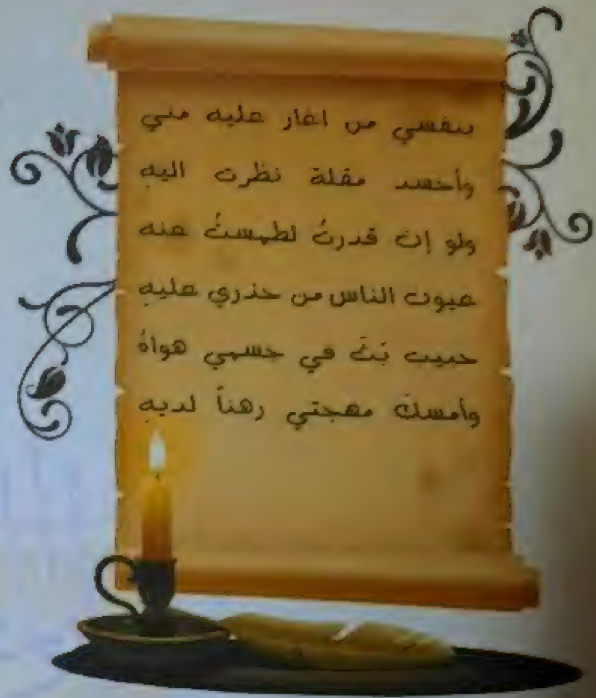 بنفسي من اغار عليه مني
وأحسد مقلة نظرت اليهِ
ولو إن قدرتُ لطمستُ عنه
عيون الناس من حذري عليهِ
حبيب بَثَّ في جسمي هواهُ
وأمسكَ مهجتي رهناً لديهِ